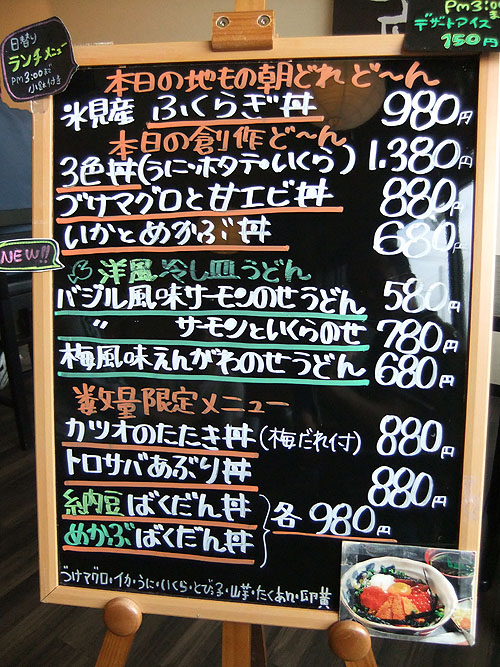 日替り
ランチメニュー
PM3:00まで
小鉢付き
PM3:00
デザートアイス
150円
本日の地もの朝どれ ど〜ん
氷見産 ふくらぎ丼 980円
本日の創作ど〜ん
3色丼(うに・ホタテ・いくら) 1,380円
づけマグロと甘エビ丼 880円
いかとめかぶ丼 680円
NEW!!
洋風冷し皿うどん
バジル風味サーモンのせうどん 580円
〃 サーモンといくらのせ 780円
梅風味えんがわのせうどん 680円
数量限定メニュー
カツオのたたき丼(梅だれ付) 880円
トロサバあぶり丼 880円
納豆ばくだん丼
各980円
めかぶばくだん丼
づけマグロ・イカ・うに・いくら・とび子・山芋・たくあん・卵黄